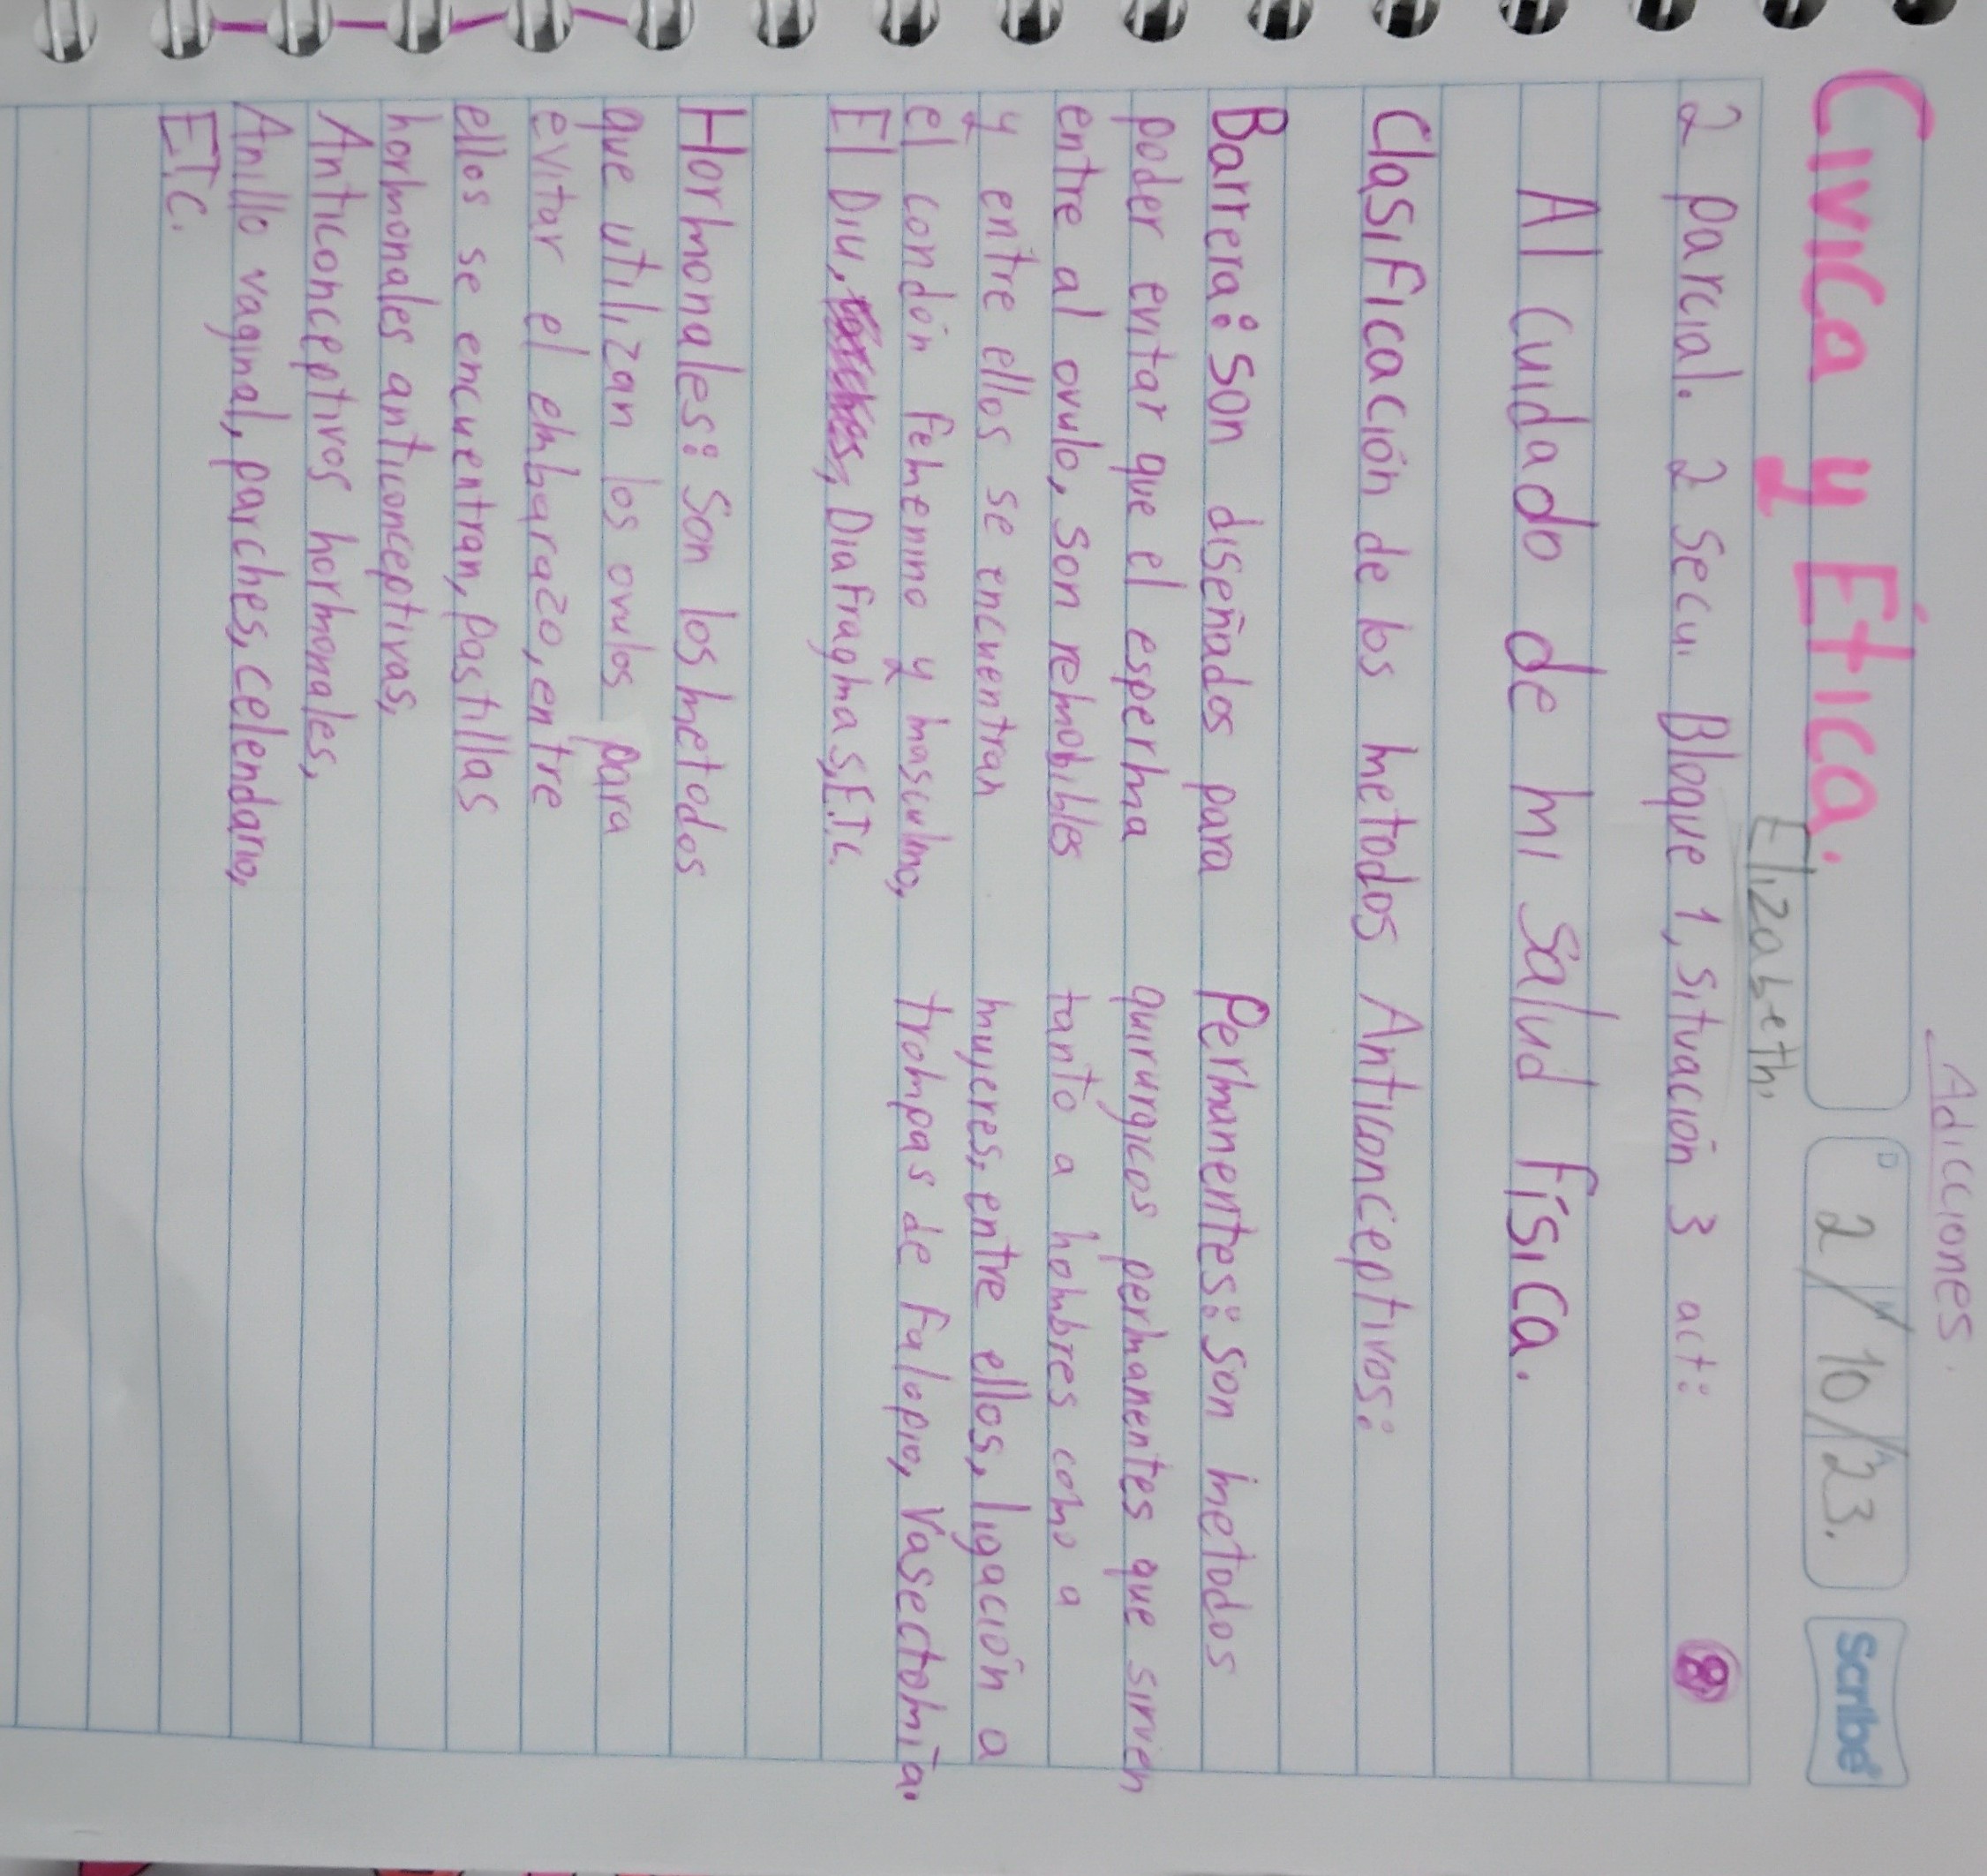 Adicciones.
Cívica y Ética.
D M A
2/10/23.
Scribe
Elizabeth.
2 parcial. 2 Secu. Bloque 1, situación 3 act:
8
Al Cuidado de mi Salud física.
Clasificación de los metodos Anticonceptivos:
Barrera: Son diseñados para
poder evitar que el esperma
entre al ovulo, son removibles
y entre ellos se encuentran
el condón femenino y masculino,
El Diu, Diafragmas, E.T.C.
Permanentes: Son metodos
quirurgicos permanentes que sirven
tanto a hombres como a
mujeres, entre ellos, ligación a
trompas de falopio, Vasectomía.
Hormonales: Son los metodos
que utilizan los ovulos para
evitar el embarazo, entre
ellos se encuentran, pastillas
hormonales anticonceptivas,
Anticonceptivos hormonales,
Anillo vaginal, parches, celendario,
ETC.